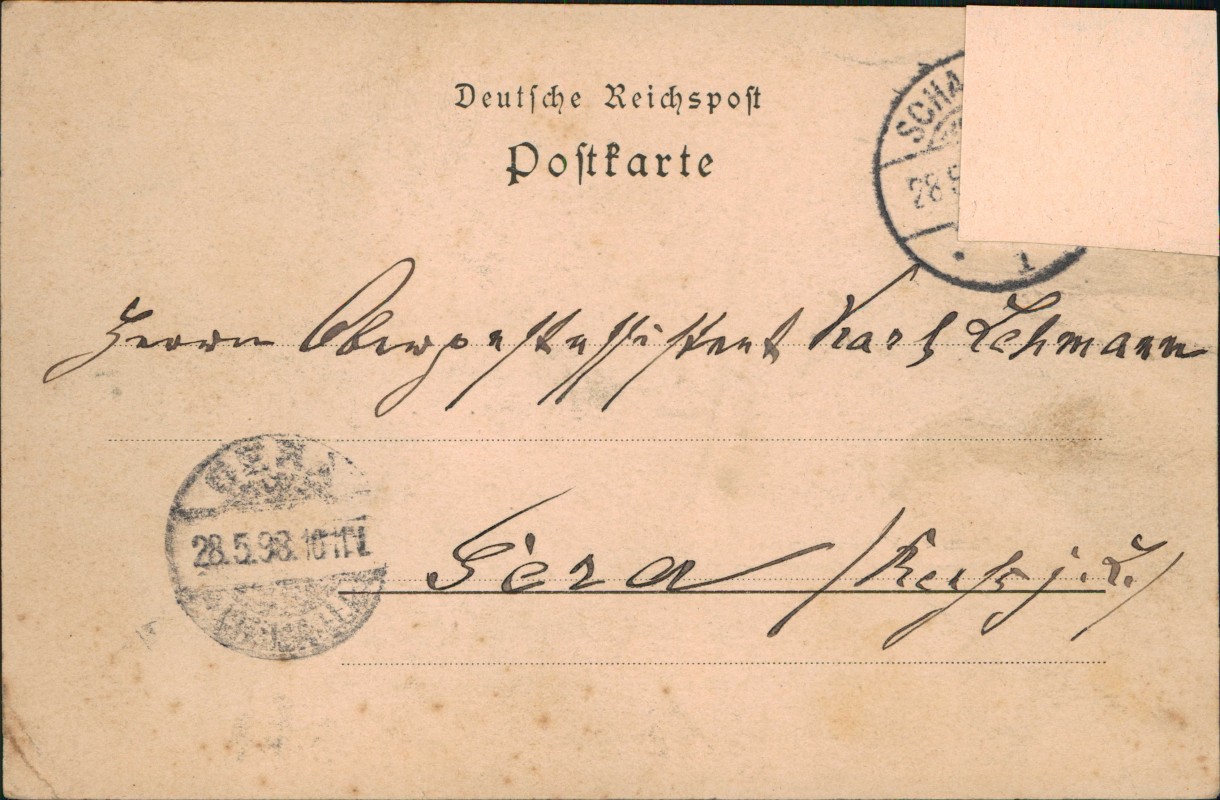 Deutsche Reichspost
Postkarte
SCHA
28.5
1
Herrn Oberpostassistent Karl Lehmann
GERA
28.5.98.10-11V.
Gera /Reuß j. L./